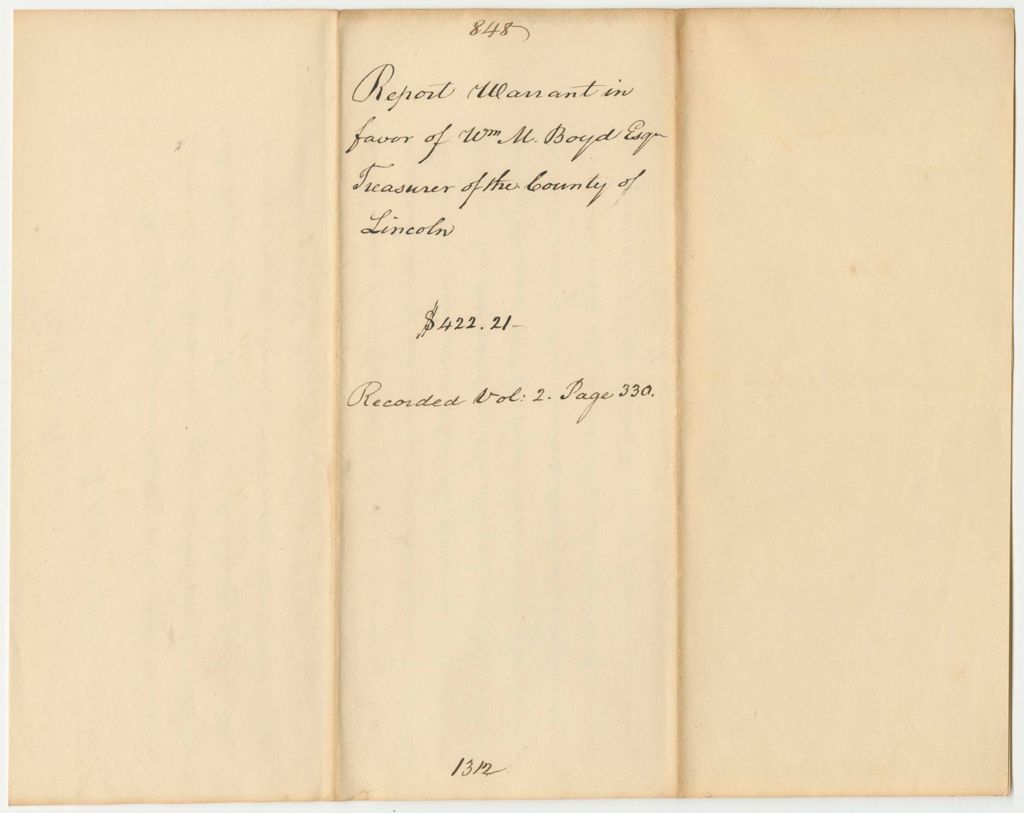 848
Report Warrant in
favor of Wm M. Boyd Esqr
Treasurer of the County of
Lincoln
$422.21-
Recorded Vol: 2. Page 330.
1312